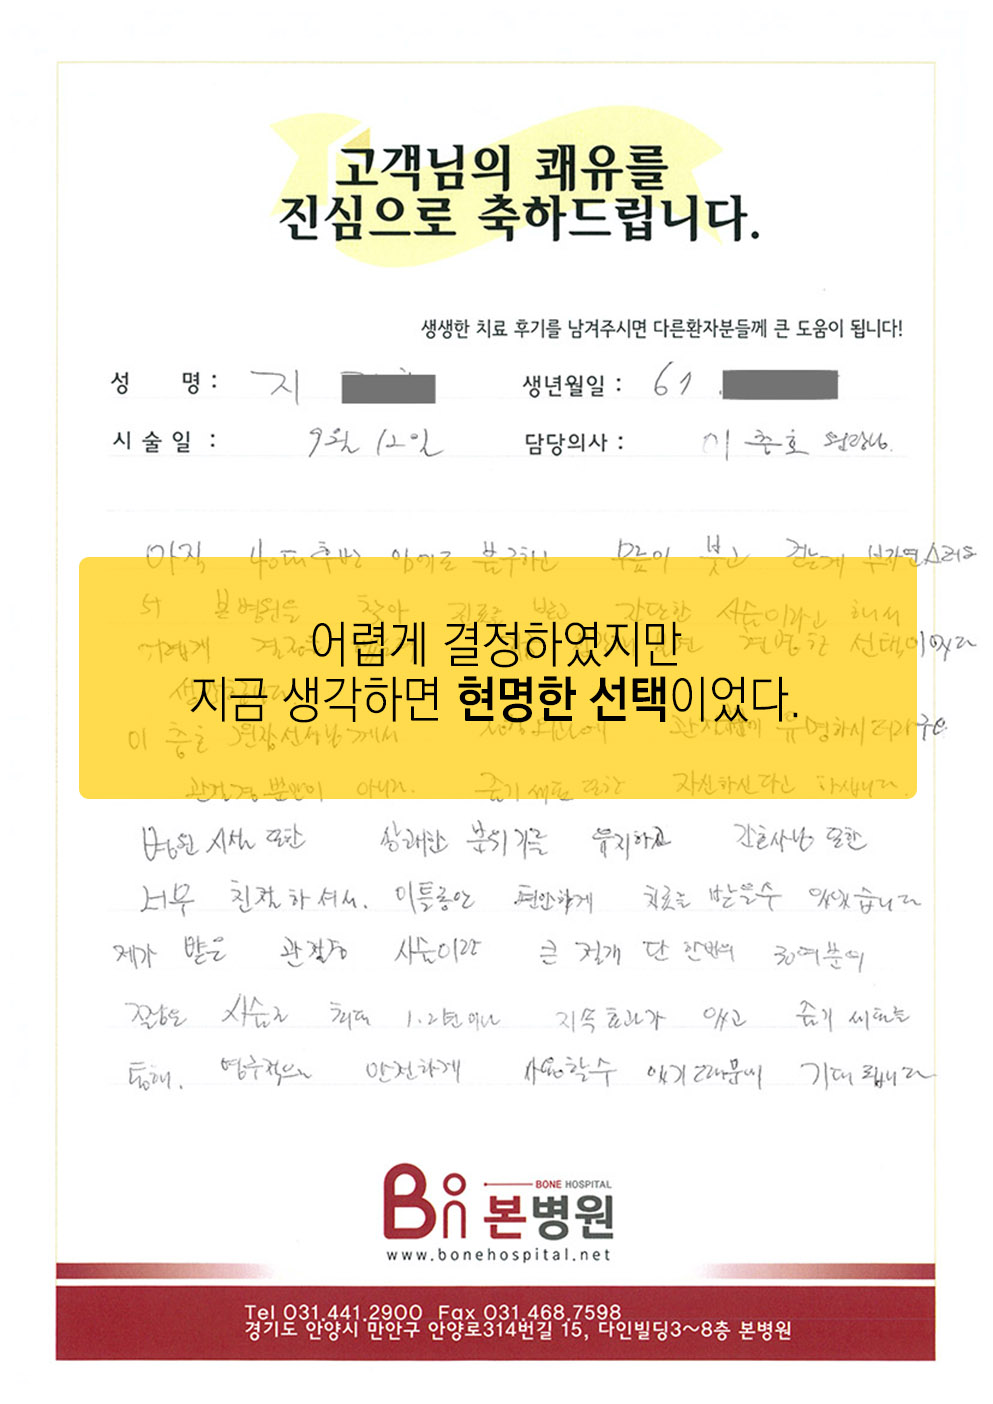 고객님의 쾌유를
진심으로 축하드립니다.
생생한 치료 후기를 남겨주시면 다른환자분들께 큰 도움이 됩니다!
성 명 : 지
생년월일 : 61
시 술 일 : 9월 12일
담당의사 : 이춘호 원장님.
아직 40대후반 임에도 불구하고 무릎이 붓고 걷는게 부자연스러워
서 본병원을 찾아 진료를 받고 간단한 시술이라고 해서
어렵게 결정을 현명한 선택이었다
생각
어렵게 결정하였지만
지금 생각하면 현명한 선택이었다.
이춘호 원장선생님께서 유명하시더라구요
관절경 뿐만이 아니라. 줄기세포 또한 자신하신다고 하십니다.
병원시설 또한 분위기를 유지하고 간호사님 또한
너무 친절하셔서. 이틀동안 편안하게 치료를 받을수 있었습니다
제가 받은 관절경 시술이랑 큰 절개 단 한번의 30여분의
짧은 시술로 최대 1.2년이나 지속효과가 있고 줄기세포를
통해. 영구적으로 안전하게 사용할수 있기때문에 기대됩니다
BONE HOSPITAL
본병원
www.bonehospital.net
Tel 031.441.2900 Fax 031.468.7598
경기도 안양시 만안구 안양로314번길 15, 다인빌딩3~8층 본병원